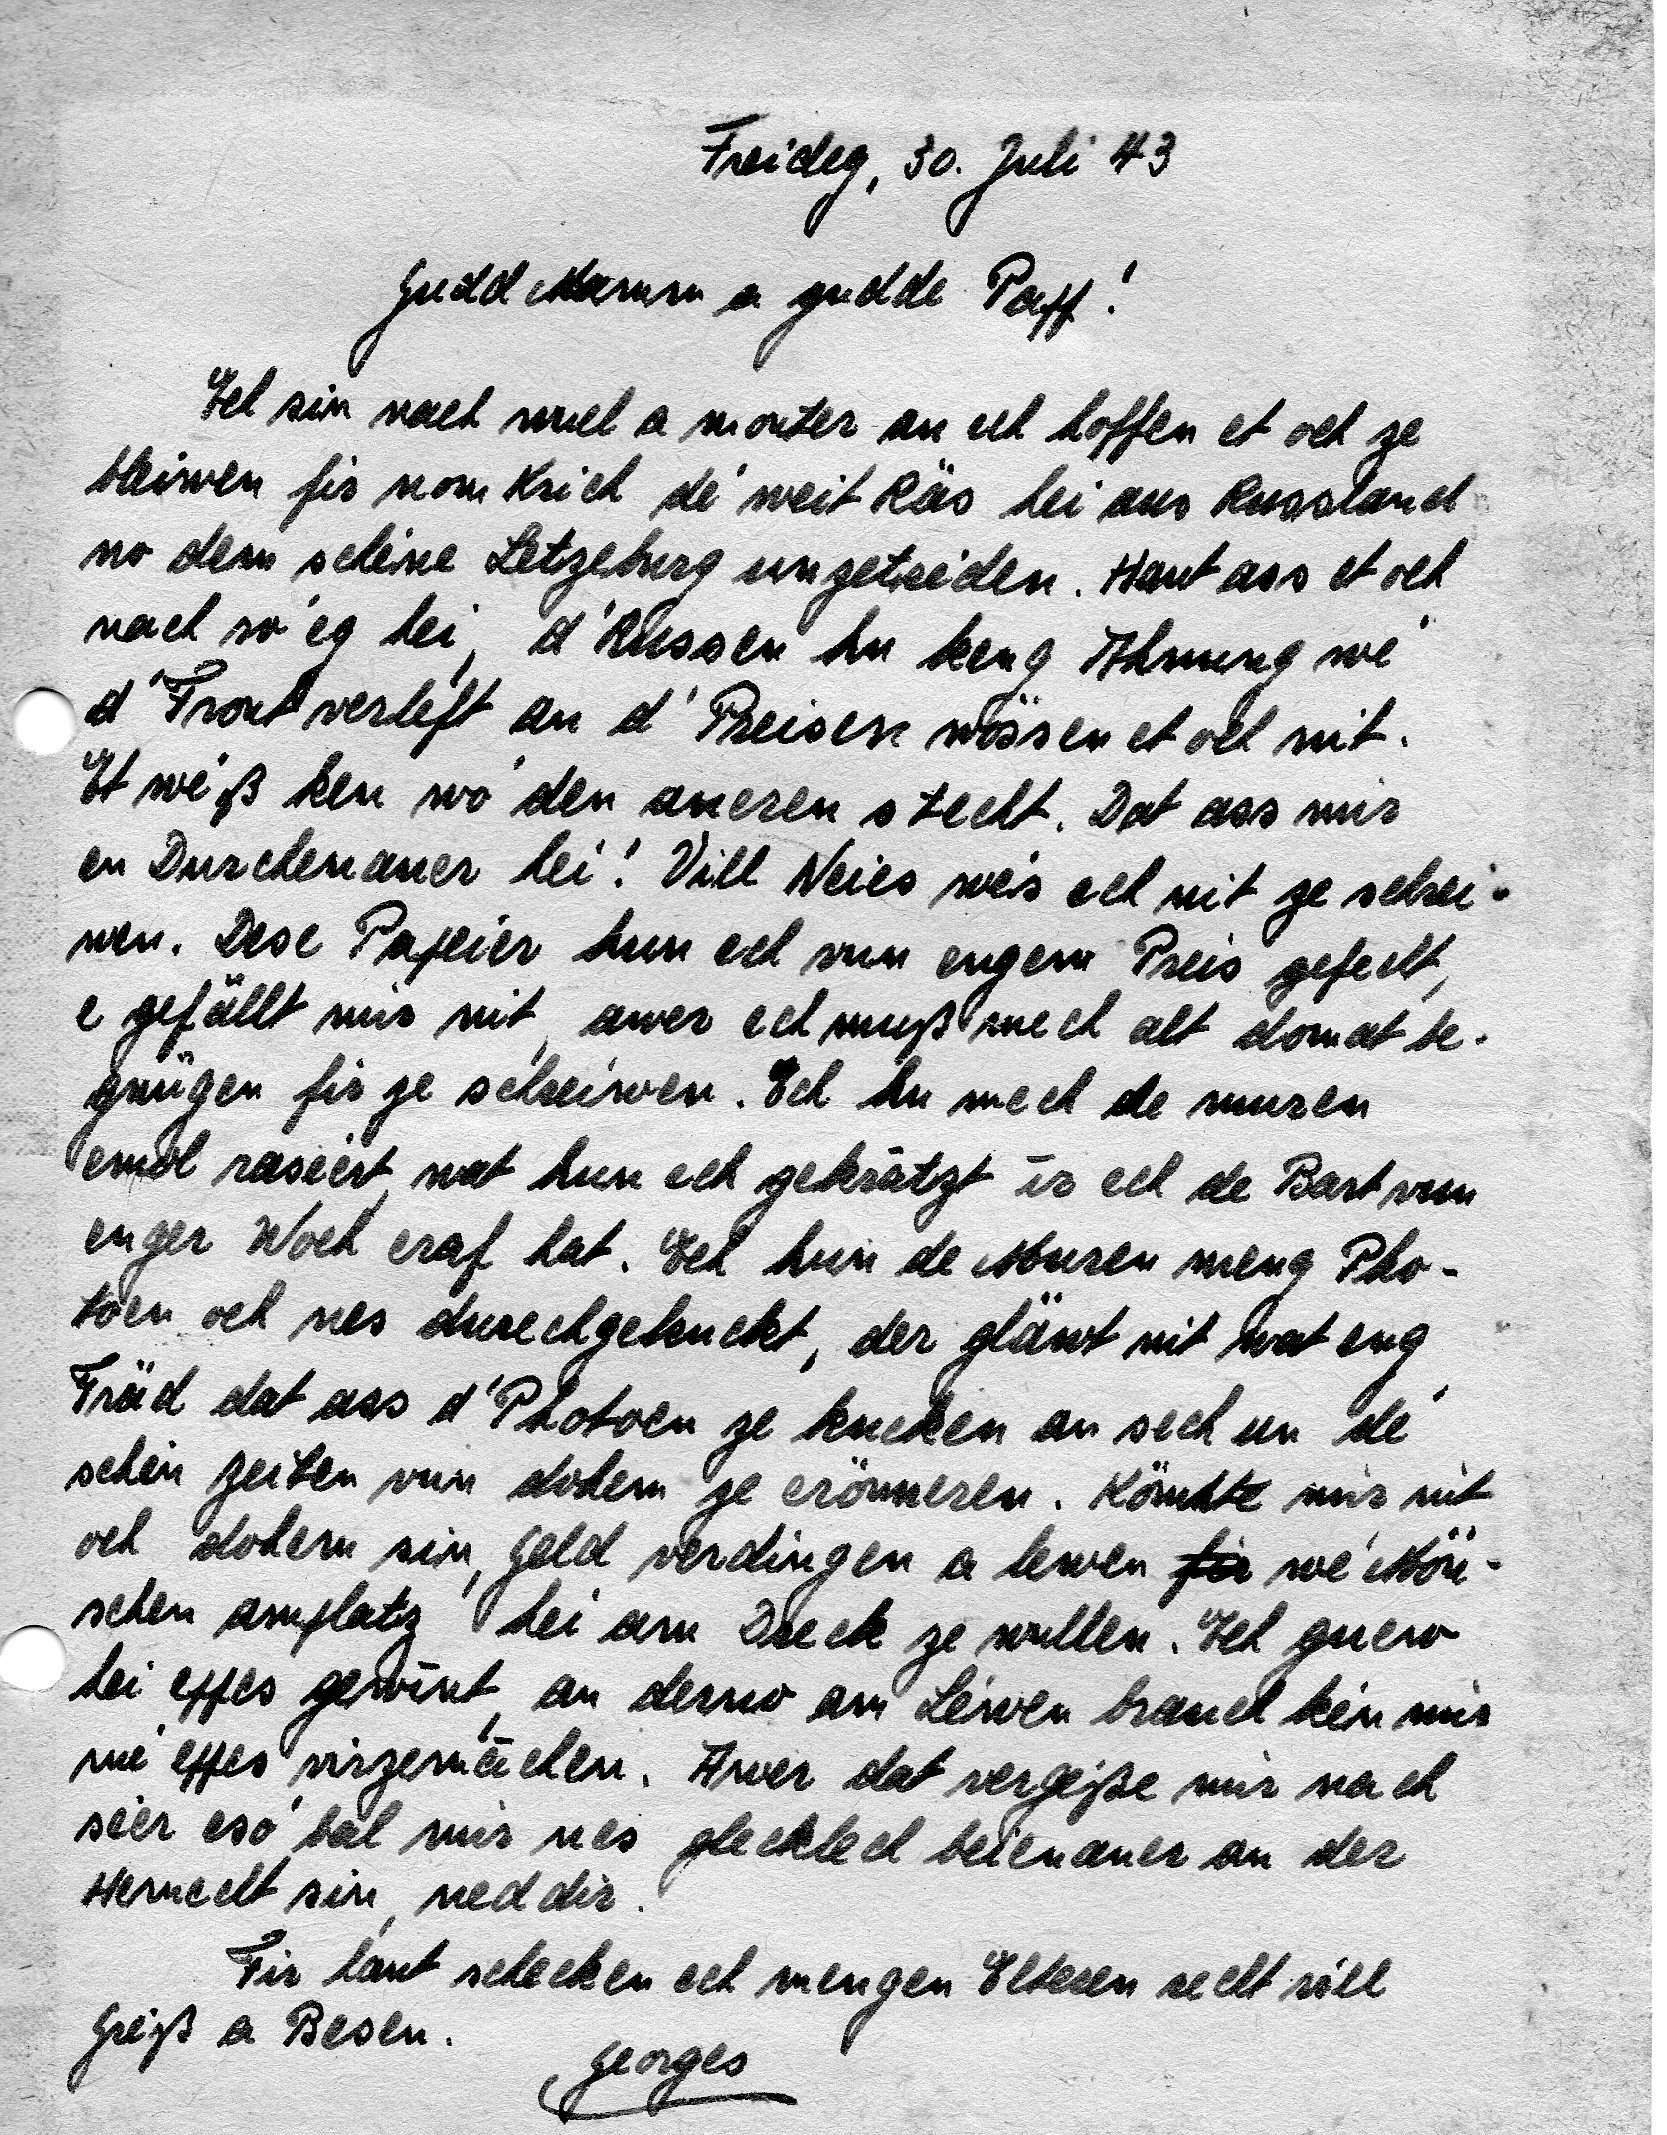 Freideg, 30. Juli 43
Gudd Mamm a gudde Papp!
Ech sin nach wuel a monter an ech hoffen et och ze
bleiwen fir nom Krich dé weit Räs hei aus Russland
no dem schéine Letzeburg unzetrieden. Haut ass et och
nach ro'eg hei, d'Russen hu keng Ahnung wé
d'Front verléft an d'Preisen wössen et och nit.
Et wéß ken wo den aneren stecht. Dat ass mir
en Durchenaner hei! Vill Neies wés ech nit ze schrei-
wen. Dese Papeier hun ech vun engem Preis gefecht,
e gefällt mir nit, awer ech muß mech alt domat be-
gnügen fir ze schreiwen. Ech hu mech de muren
emol raséiert, wat hun ech gekrätzt ir ech de Bart vun
enger Woch eraf hat. Ech hun de Muren meng Pho-
toen och nes durechgekuckt, der gläwt nit wat eng
Fräd dat ass d'Photoen ze kucken an sech un dé
schéin Zeiten vun dohem ze erönneren. Könnte mir nit
och dohem sin, Geld verdingen a lewen fir wé Mön-
schen amplatz hei am Dreck ze wullen. Ech guew
hei eppes gewint, an derno am Léwen brauch kén mir
mé eppes virzemächen. Awer dat vergeße mir nach
séier esó bal mir nes glecklech beienaner an der
Hemecht sin, ned dir.
Fir haut schecken ech mengen Elteren recht vill
Gréiß a Besen.
Georges